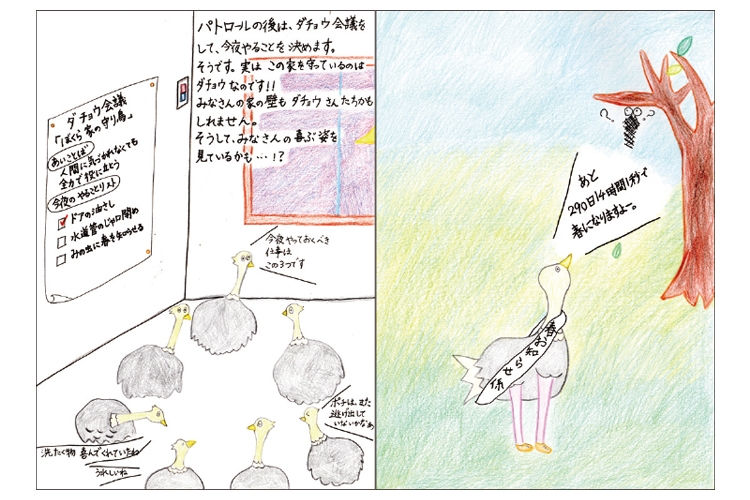 パトロールの後は、ダチョウ会議を
して、今夜やることを決めます。
そうです。実は この家を守っているのは
ダチョウなのです!!
みなさんの家の壁も ダチョウさんたちかも
しれません。
そうして、みなさんの喜ぶ姿を
見ているかも…!?
ダチョウ会議
「ぼくら 家の守り鳥」
あいことば
人間に気づかれなくても
全力で役に立とう
今夜のやることリスト
ドアの油さし
水道管のじゃ口閉め
みの虫に春を知らせる
今夜やっておくべき
仕事は
この3つです
ポチは、また
逃げ出して
いないかなあ
洗たく物 喜んでくれていたね
うれしいね
?
?
あと
290日14時間1秒で
春になりますよー。
春お知らせ係